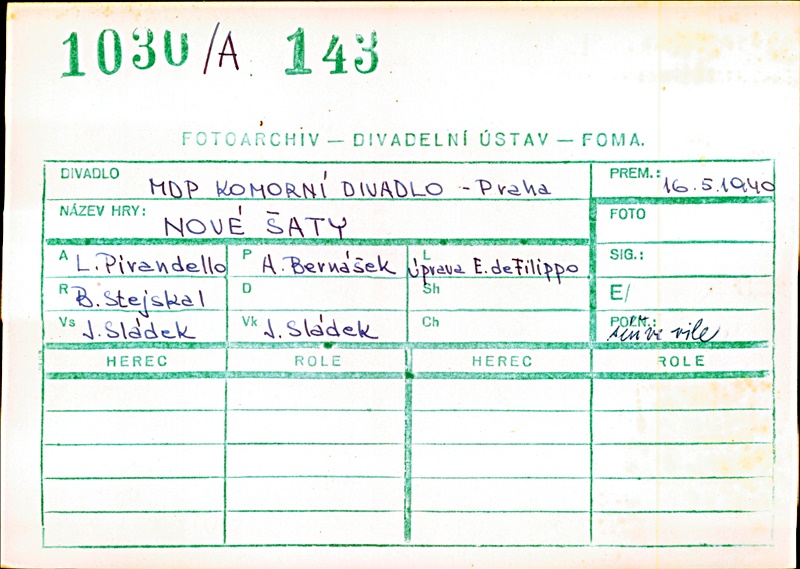 1030/A 143
FOTOARCHIV — DIVADELNÍ ÚSTAV — FOMA.
DIVADLO MDP KOMORNÍ DIVADLO - Praha PREM.: 16.5.1940
NÁZEV HRY: NOVÉ ŠATY FOTO
A L. Pirandello P A. Bernášek L úprava E. de Filippo SIG.:
R B. Stejskal D Sh E/
Vs J. Sládek Vk J. Sládek Ch POZN.:
HEREC ROLE HEREC ROLE